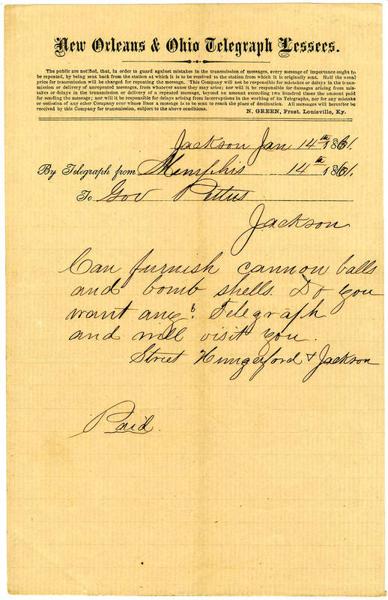 New Orleans & Ohio Telegraph Lessees.
The public are notified, that, in order to guard against mistakes in the transmission of messages, every message of importance ought to
be repeated, by being sent back from the station at which it is to be received to the station from which it is originally sent. Half the usual
price for transmission will be charged for repeating the message. This Company will not be responsible for mistakes or delays in the trans-
mission or delivery of unrepeated messages, from whatever cause they may arise; nor will it be responsible for damages arising from mis-
takes or delays in the transmission or delivery of a repeated message, beyond an amount exceeding two hundred times the amount paid
for sending the message; nor will it be responsible for delays arising from interruptions in the working of its Telegraphs, nor for any mistake
or omission of any other Company over whose lines a message is to be sent to reach the place of destination. All messages will hereafter be
received by this Company for transmission, subject to the above conditions.
N. GREEN, Prest. Louisville, Ky.
Jackson Jan 14th 1861.
By Telegraph from Memphis 14th 1861.
To Gov Pettus
Jackson
Can furnish cannon balls
and bomb shells. Do you
want any? Telegraph
and will visit you.
Street Hungerford & Jackson
Paid.